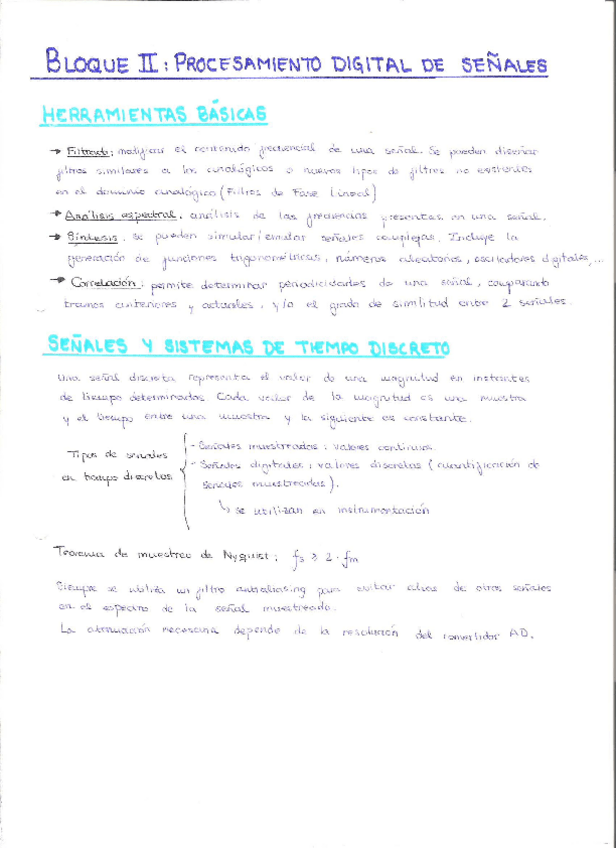 BLOQUE II: PROCESAMIENTO DIGITAL DE SEÑALES
HERRAMIENTAS BÁSICAS
→ Filtrado: modificar el contenido frecuencial de una señal. Se pueden diseñar
filtros similares a los analógicos o nuevos tipos de filtros no existentes
en el dominio analógico (Filtros de Fase Lineal)
→ Análisis espectral: análisis de las frecuencias presentes en una señal.
→ Síntesis: se pueden simular/emular señales complejas. Incluye la
generación de funciones trigonométricas, números aleatorios, osciladores digitales,...
→ Correlación: permite determinar periodicidades de una señal, comparando
tramos anteriores y actuales, y/o el grado de similitud entre 2 señales.
SEÑALES Y SISTEMAS DE TIEMPO DISCRETO
Una señal discreta representa el valor de una magnitud en instantes
de tiempo determinados. Cada valor de la magnitud es una muestra
y el tiempo entre una muestra y la siguiente es constante.
Tipos de señales
en tiempo discretos
- Señales muestreadas: valores continuos.
- Señales digitales: valores discretos (cuantificación de
señales muestreadas).
↳ se utilizan en instrumentación
Teorema de muestreo de Nyquist: fs ≥ 2·fm
Siempre se utiliza un filtro antialiasing para evitar alias de otras señales
en el espectro de la señal muestreada.
La atenuación necesaria depende de la resolución del convertidor AD.